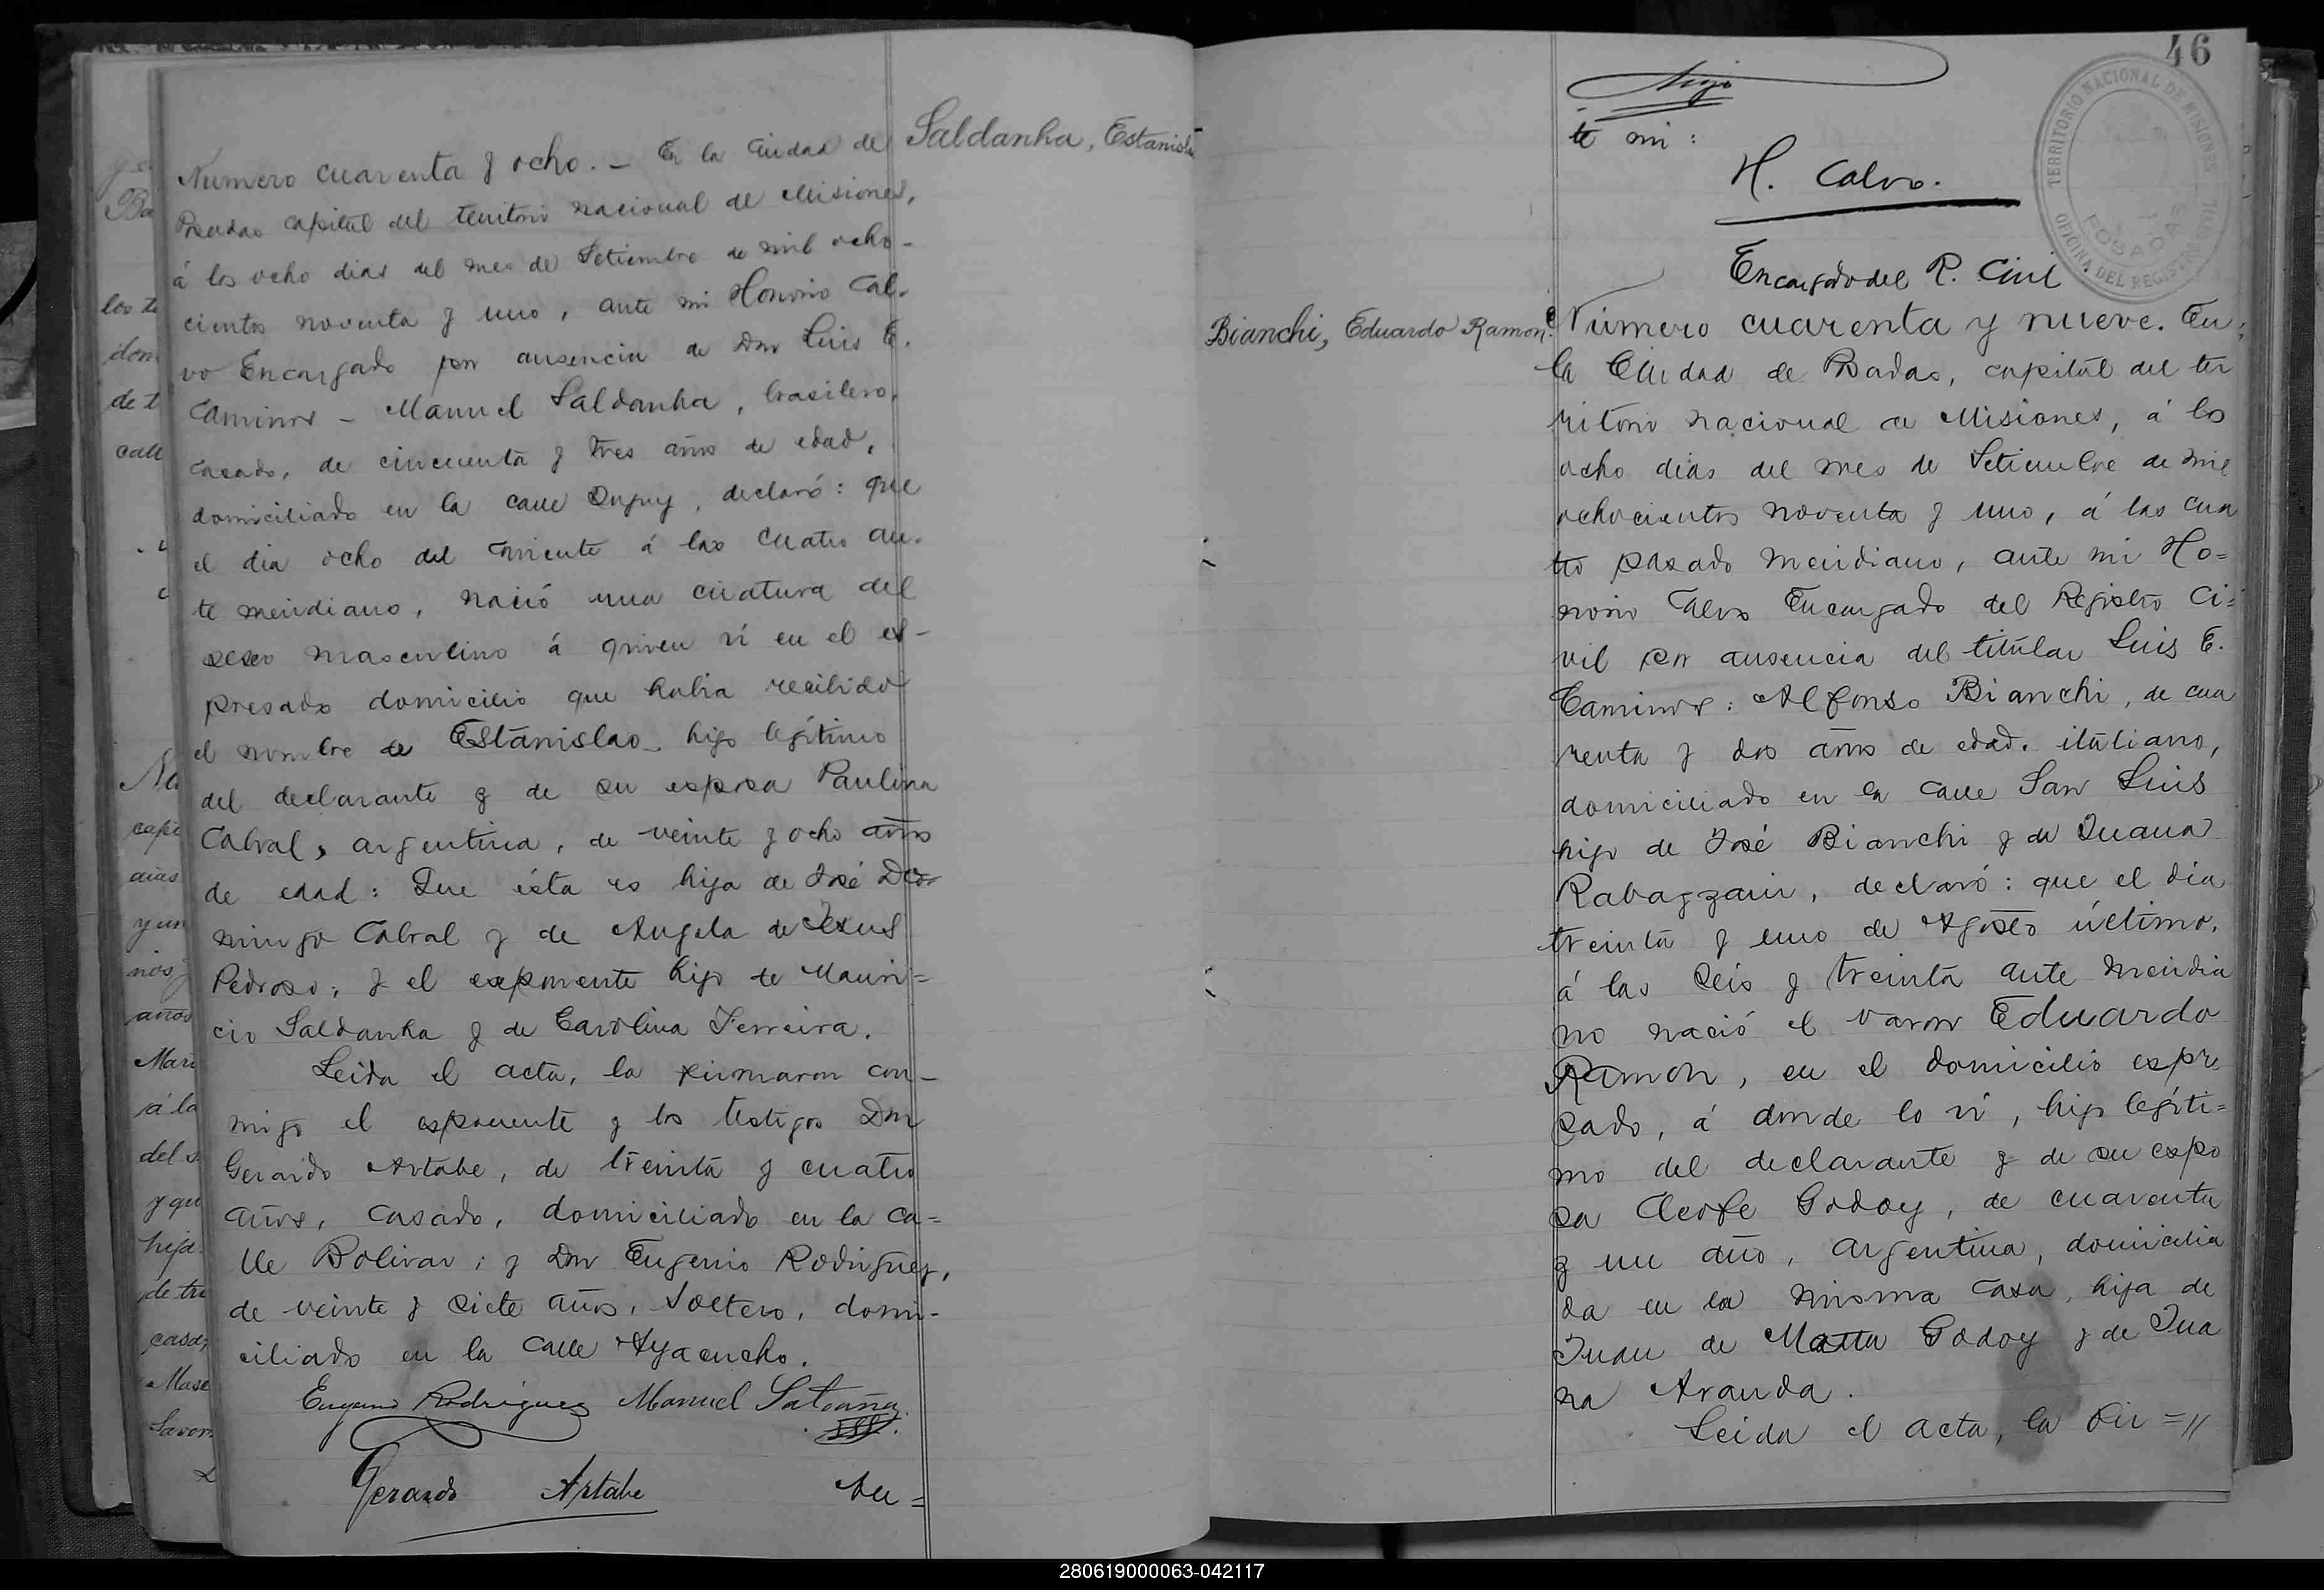 Saldanha, Estanisla
Numero cuarenta y ocho. _ En la Ciudad de
Posadas capital del territorio nacional de Misiones,
á los ocho dias del mes de Setiembre de mil ocho-
cientos noventa y uno, ante mi Honorio Cal-
vo Encargado por ausencia de Don Luis E.
Caminos - Manuel Saldanha, brasilero,
casado, de cincuenta y tres años de edad,
domiciliado en la calle, declaró: que
el dia ocho del corriente á las cuatro an-
te meridiano, nació una criatura del
sexo masculino á quien ví en el es-
presado domicilio que habia recibido
el nombre de Estanislao_ hijo legítimo
del declarante y de su esposa Paulina
Cabral, argentina, de veinte y ocho años
de edad: Que ésta es hija de José Do-
mingo Cabral y de Angela de Jesus
Pedroso; y el exponente hijo de Mauri=
cio Saldanha y de Carolina Ferreira.
Leida el acta, la firmaron con-
migo el esponente y los testigos Don
Gerardo Artabe, de treinta y cuatro
años, casado, domiciliado en la ca=
lle Bolivar; y Don Eugenio Rodriguez,
de veinte y siete años, soltero, domi-
ciliado en la calle Ayacucho.
Eugenio Rodriguez Manuel
Gerardo Artabe An=
46
te mi:
H. Calvo.
Encargado del R. Civil
TERRITORIO NACIONAL DE MISIONES
OFICINA DEL REGISTRO CIVIL
POSADAS
Bianchi, Eduardo Ramon.
Número cuarenta y nueve. En
la Ciudad de Posadas, capital del ter
ritorio nacional de Misiones, á los
ocho dias del mes de Setiembre de mil
ochocientos noventa y uno, á las cua
tro pasado meridiano, ante mi Ho=
norio Calvo Encargado del Registro Ci=
vil por ausencia del titular Luis E.
Caminos: Alfonso Bianchi, de cua
renta y dos años de edad. italiano,
domiciliado en la calle San Luis
hijo de José Bianchi y de Juana
declaró: que el dia
treinta y uno de Agosto último,
á las seis y treinta ante meridia
no nació el varon Eduardo
Ramon, en el domicilio espre
sado, á donde lo ví, hijo legíti=
mo del declarante y de su espo
sa Cleofe Godoy, de cuarenta
y un año, argentina, domicilia
da en la misma casa, hija de
Juan de Matta Godoy y de Jua
na Aranda.
Leida el acta, la fir=//
280619000063-042117